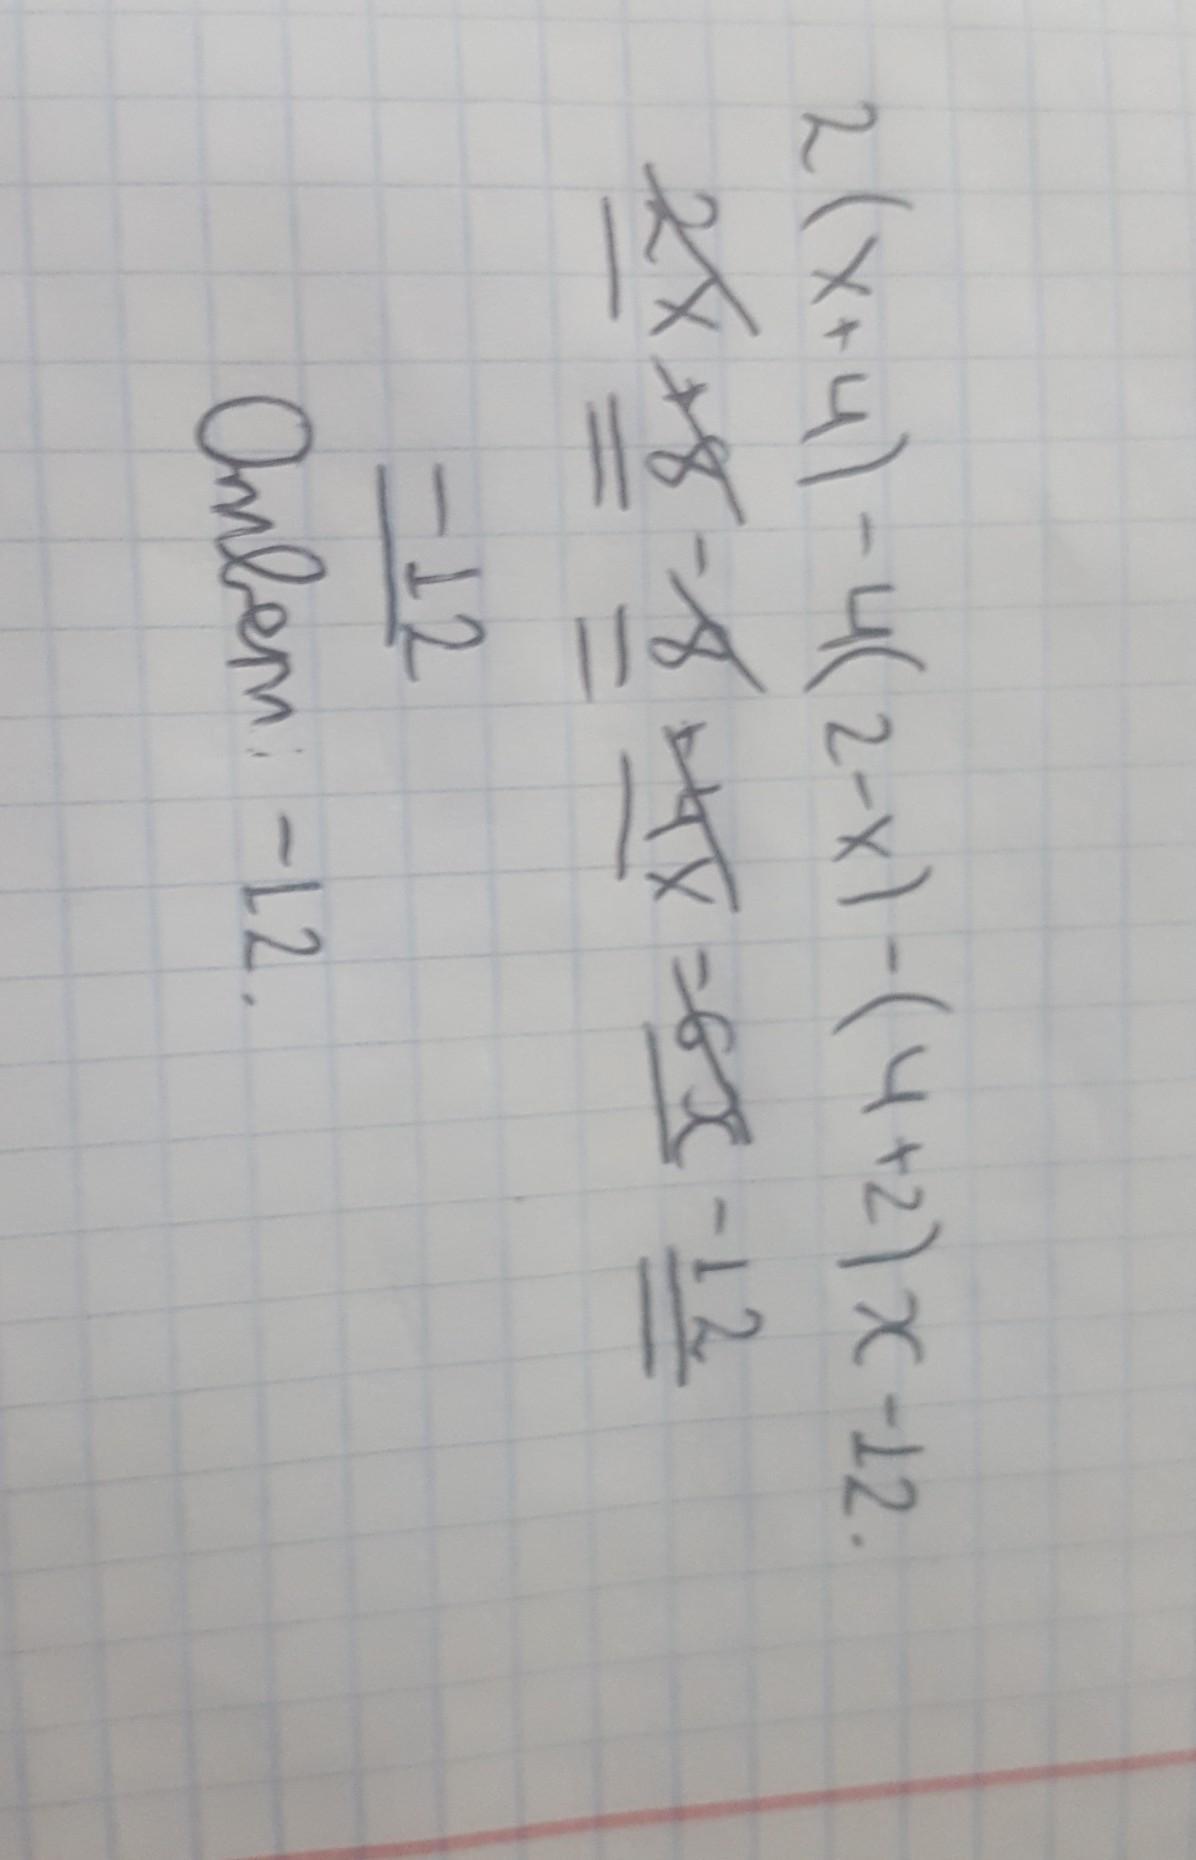 2(x+4)-4(2-x)-(4+2)x-12.
2x+8-8+4x-6x-12
-12
Ответ: -12.